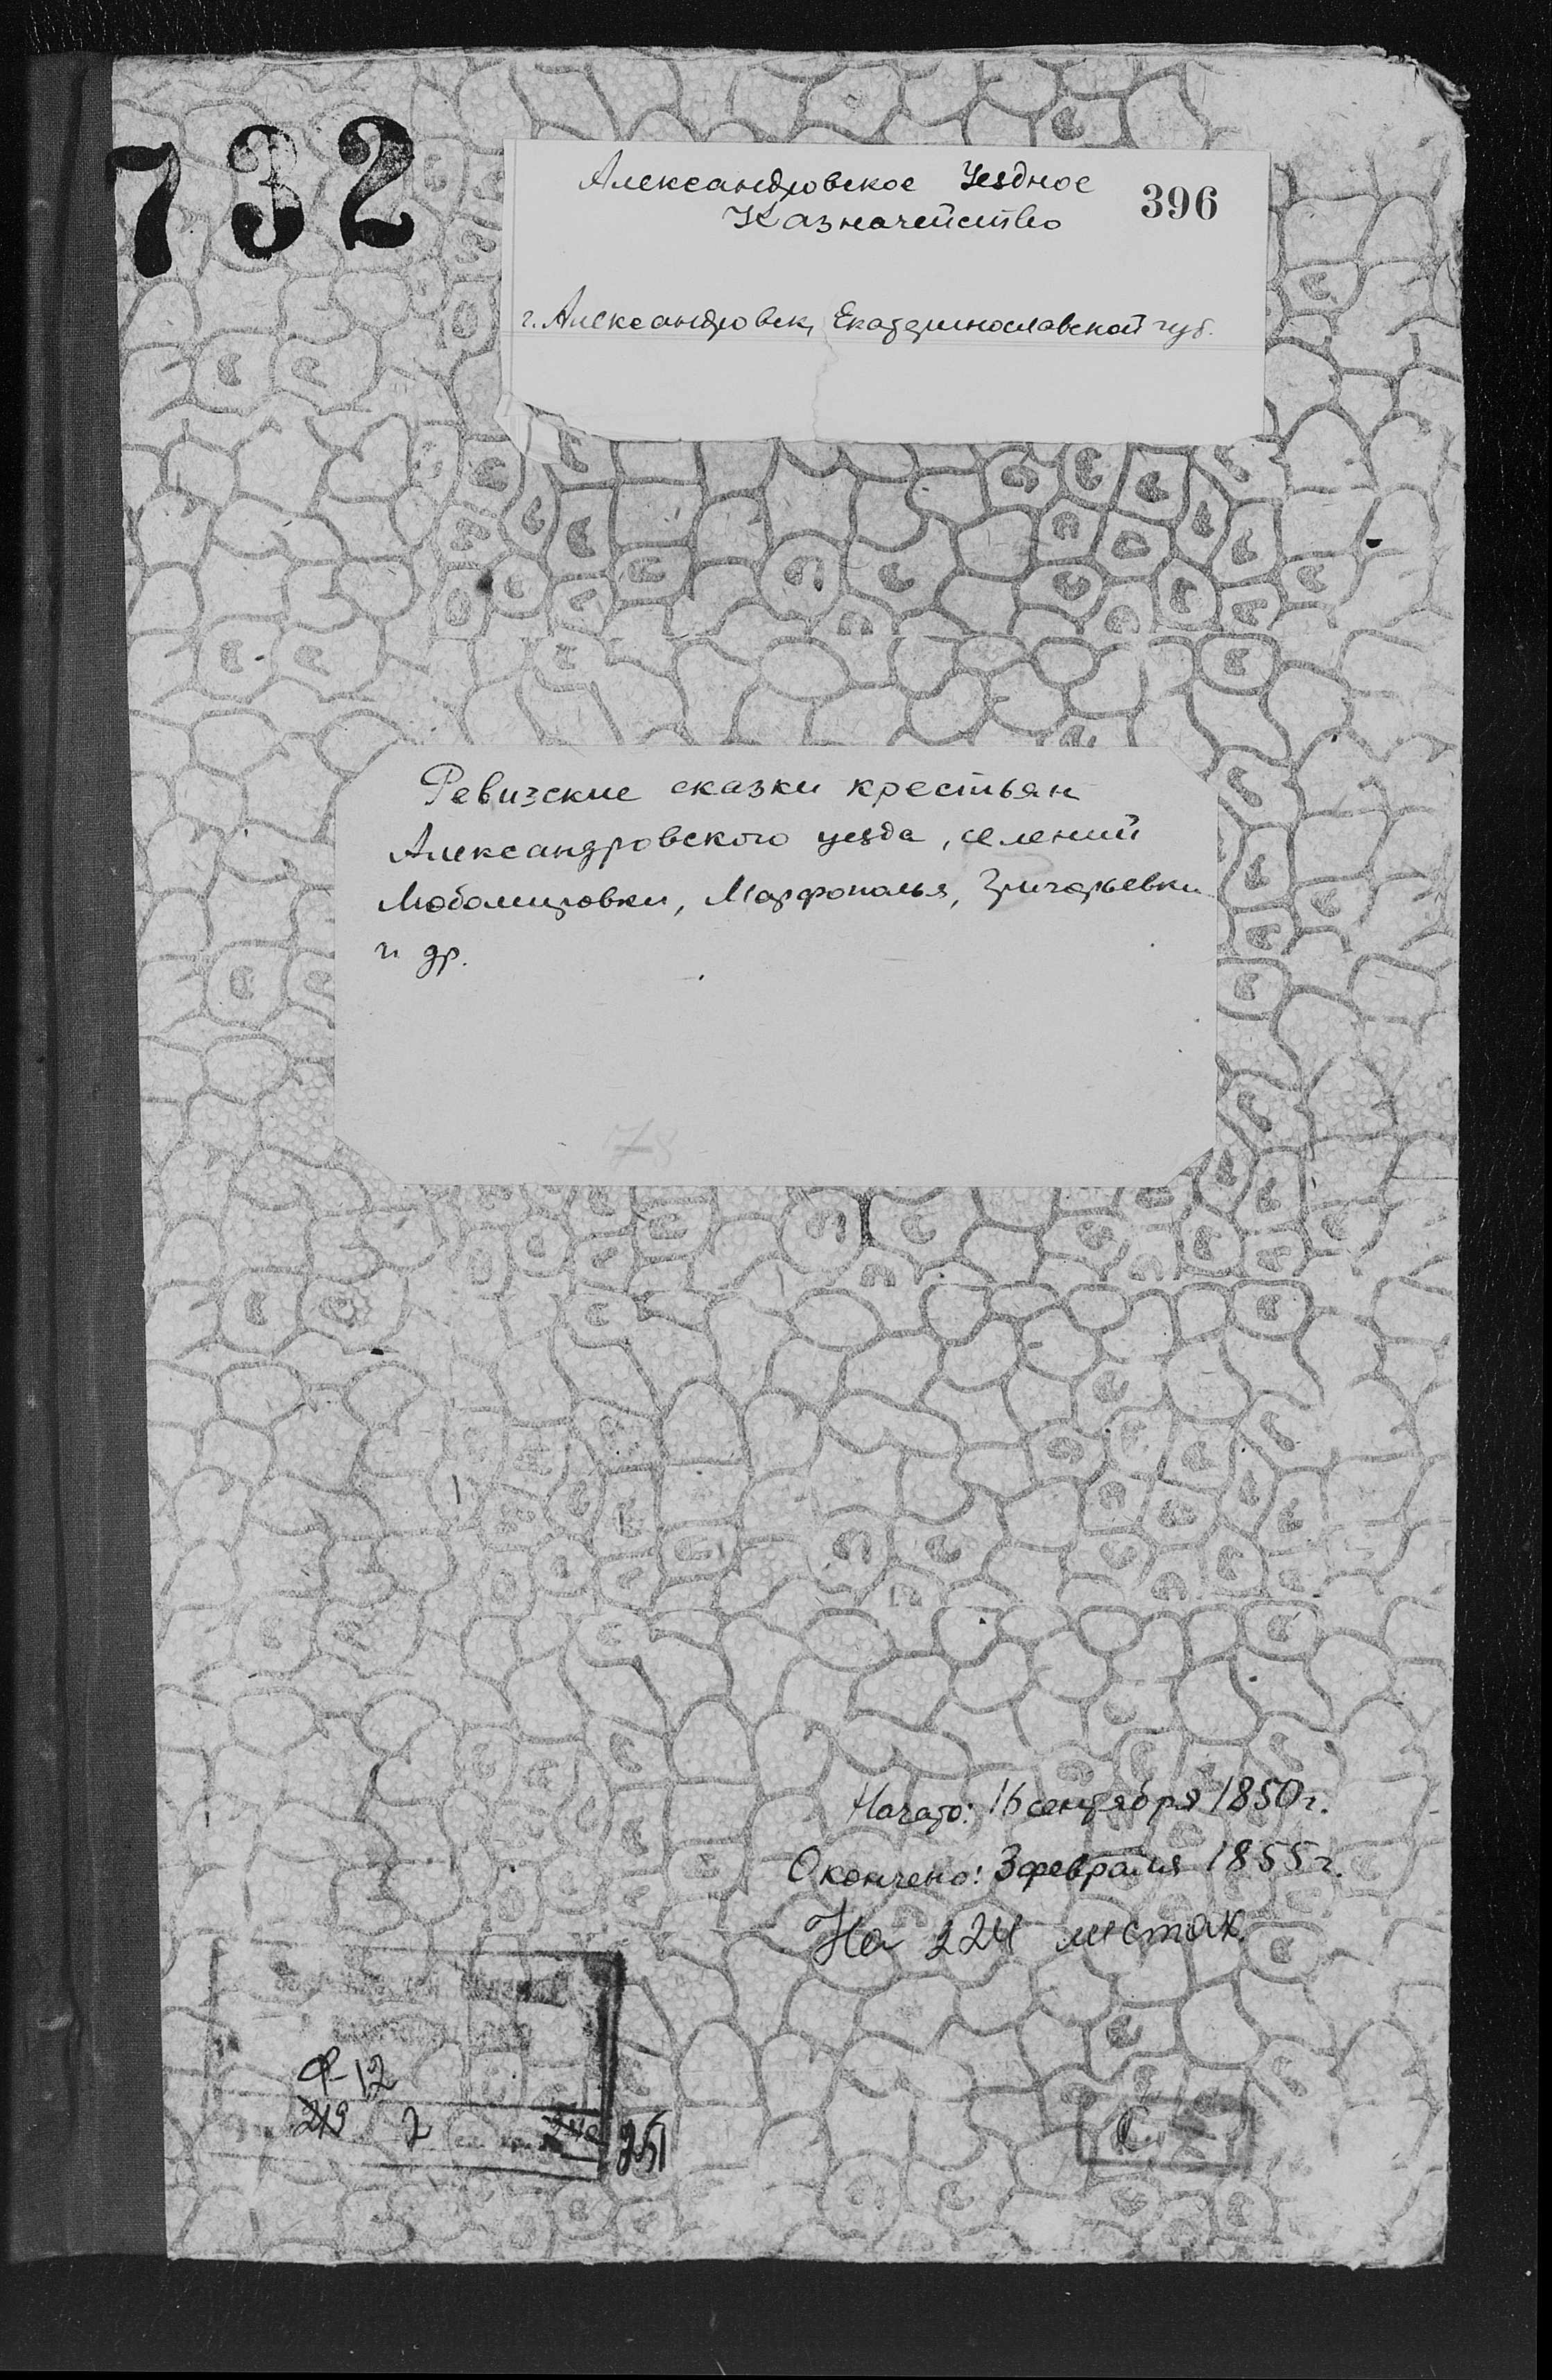 732
Александровское Уездное
Казначейство
396
г. Александровск, Екатеринославской губ.
Ревизские сказки крестьян
Александровского уезда, селений
Любомировки, Марфополья, Григорьевки
и др.
78
Начато: 16 сентября 1850 г.
Окончено: 3 февраля 1855 г.
На 224 листах.
Ф-12
219 2 251